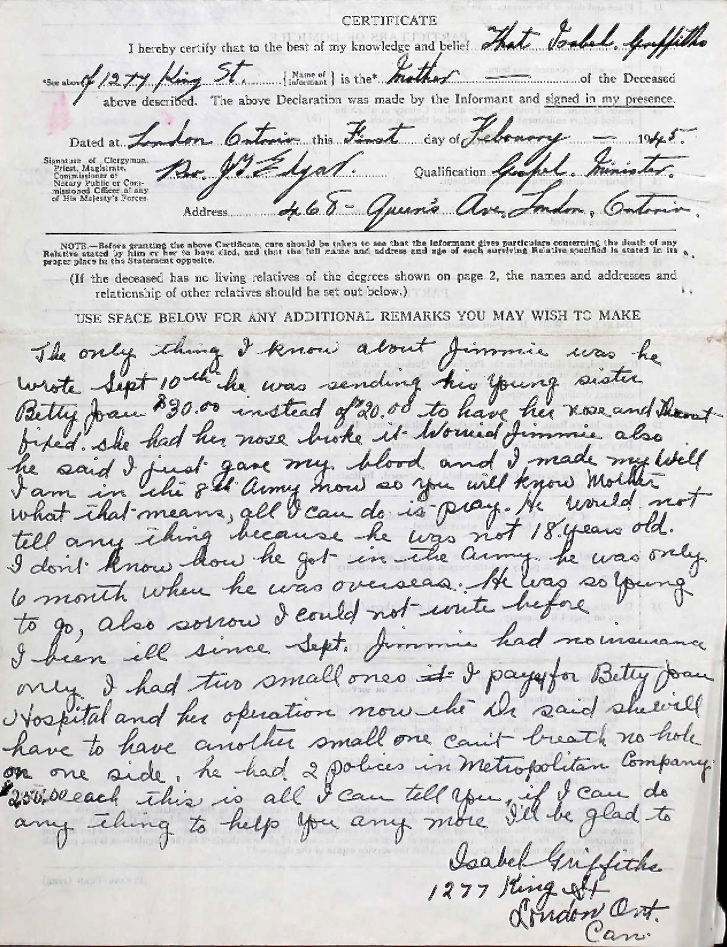 CERTIFICATE
I hereby certify that to the best of my knowledge and belief That Isabel Griffiths
*See above of 1277 King St. {Name of informant} is the* Mother — of the Deceased
above described. The above Declaration was made by the Informant and signed in my presence.
Dated at London Ontario this First day of February — 1945.
Signature of Clergyman, Priest, Magistrate, Commissioner or Notary Public or Commissioned Officer of any of His Majesty's Forces. Rev. J G Edgar. Qualification Gospel Minister.
Address 468 - Queen's Ave, London, Ontario.
NOTE.—Before granting the above Certificate, care should be taken to see that the informant gives particulars concerning the death of any
Relative stated by him or her to have died, and that the full name and address and age of each surviving Relative specified is stated in its
proper place in the Statement opposite.
(If the deceased has no living relatives of the degrees shown on page 2, the names and addresses and
relationship of other relatives should be set out below.)
USE SPACE BELOW FOR ANY ADDITIONAL REMARKS YOU MAY WISH TO MAKE
The only thing I know about Jimmie was he
wrote Sept 10th he was sending his young sister
Betty Joan $30.00 instead of $20.00 to have her nose and throat
fixed. she had her nose broke it Worried Jimmie also
he said I just gave my blood and I made my Will
I am in the 8th Army now so you will know Mother
what that means, all I can do is pray. He would not
tell any thing because he was not 18 years old.
I don't know how he got in the Army. he was only
6 month when he was overseas. He was so young
to go, also sorrow I could not write before
I been ill since Sept. Jimmie had no insurance
only I had two small ones I pay for Betty Joan
Hospital and her operation now the Dr said she will
have to have another small one can't breath no hole
on one side. he had 2 polices in Metropolitan Company.
$250.00 each this is all I can tell you, if I can do
any thing to help you any more I'll be glad to
Isabel Griffiths
1277 King St
London Ont.
Can.